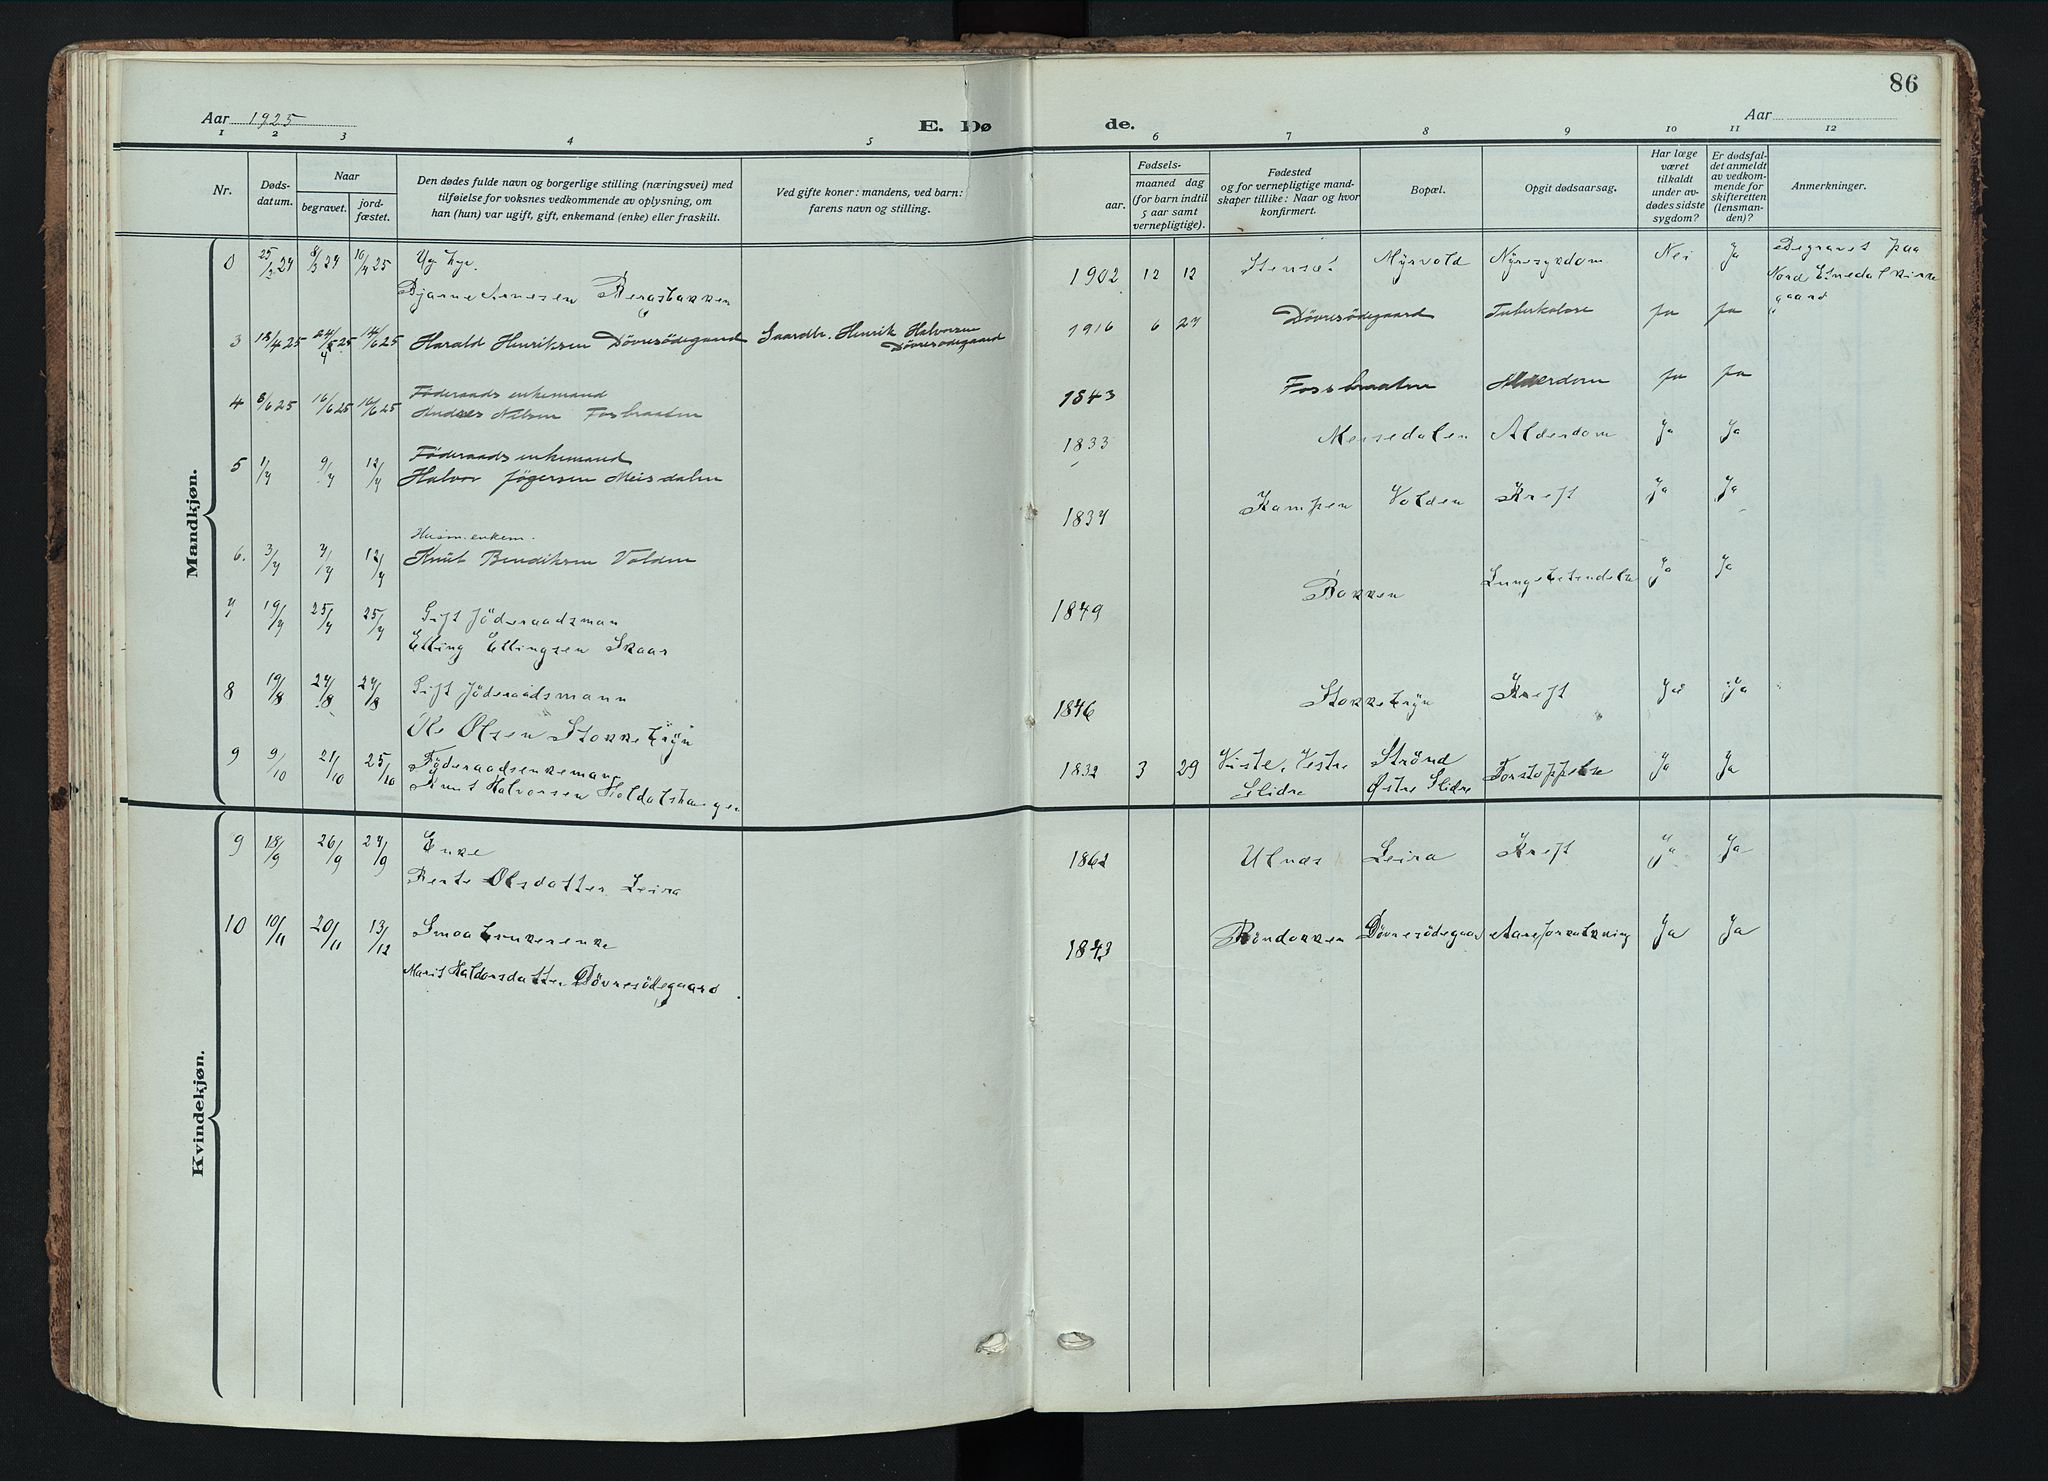 86
Aar 1925
E. Dø de.
Aar
1 2 3 4 5 6 7 8 9 10 11 12
Nr.
Døds-
datum.
Naar
begravet.
jord-
fæstet.
Den dødes fulde navn og borgerlige stilling (næringsvei) med
tilføielse for voksnes vedkommende av oplysning, om
han (hun) var ugift, gift, enkemand (enke) eller fraskilt.
Ved gifte koner: mandens, ved barn:
farens navn og stilling.
Fødsels-
aar.
maaned dag
(for barn indtil
5 aar samt
vernepligtige).
Fødested
og for vernepligtige mand-
skaper tillike: Naar og hvor
konfirmert.
Bopæl.
Opgit dødsaarsag.
Har læge
været
tilkaldt
under av-
dødes sidste
sygdom?
Er dødsfal-
det anmeldt
av vedkom-
mende for
skifteretten
(lensman-
den)?
Anmerkninger.
Mandkjøn.
0 25/2 24 8/3 24 10/4 25 Ug. 1902 12 12 Myrvold Nyresygdom Nei Ja Begravet paa
Bjarne Arnesen Bergsbakken Nord Etnedal kirke
gaard
3 18/4 25 24/4 25 14/6 25 Harald Henriksen Døvresødegaard Gaardbr. Henrik Halvorsen
Døvresødegaard 1916 6 27 Døvresødegaard Tuberkulose ja ja "
4 8/6 25 16/6 25 16/6 25 Føderaads enkemand
Andres Nilsen Fosbraaten 1843 Fossbraaten Alderdom ja ja
5 1/7 9/7 12/7 Føderaads enkemand
Halvor Jøgersen Meisdalen 1833 Meisedalen Alderdom Ja Ja
6. 3/7 7/7 12/7 Husm. enkem.
Knut Bendiksen Volden 1837 Kampen Volden Kreft Ja Ja
7 19/7 25/7 25/7 Gift Föderaadsman
Elling Ellingsen Skaar 1849 Bakken Ja Ja
8 19/8 24/8 24/8 Gift Föderaadsmann
Olsen Stokkebryn 1846 Stokkebryn Kreft Ja Ja
9 9/10 21/10 25/10 Föderaadsenkeman
Knut Halvorsen Haldalshaugen 1832 3 29 Viste, Vestre
Slidre Strönd
Østre Slidre Forstoppelse Ja Ja
Kvindekjøn.
9 18/9 26/9 27/9 Enke
Berte Olsdatter Leira 1862 Ulnæs Leira Kreft Ja Ja
10 10/11 20/11 13/12 Smaabrukerenke
Marit Haldorsdatter Døvresødegaard. 1843 Döndokken Døvresødegaard Aareforkalkning Ja Ja